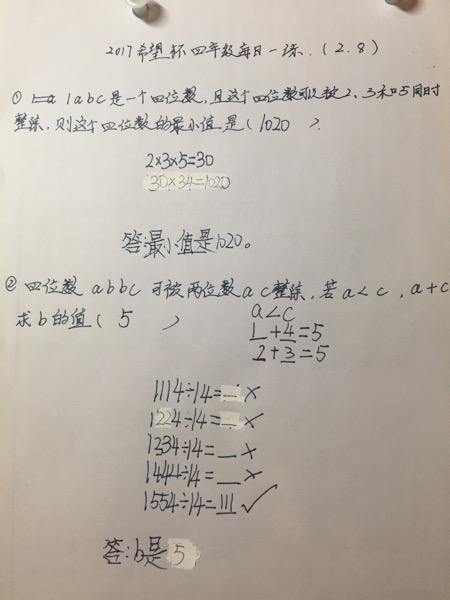 2017希望杯四年级每日一练.(2.8)
① 已知1abc是一个四位数,且这个四位数可以被2、3和5同时
整除,则这个四位数的最小值是(1020 ).
2×3×5=30
30×34=1020
答:最小值是1020。
② 四位数abbc可被两位数ac整除,若a<c,a+c
求b的值( 5 )
a<c
1+4=5
2+3=5
1114÷14=_×
1224÷14=_×
1334÷14=_×
1444÷14=_×
1554÷14=111✓
答:b是5